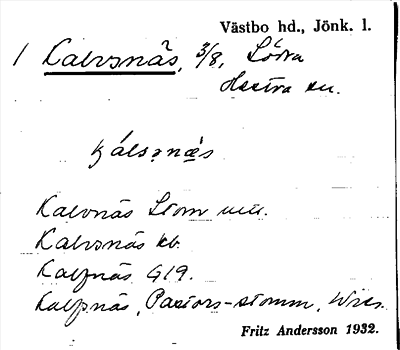 Västbo hd., Jönk. l.
1 Kalvsnäs, 3/8, Södra
Hestra sn.
kálsnä̀s
Kalvnäs Stom
Kalvsnäs kb.
Kalfnäs G19.
Kalfnäs, Pastors-stomm,
Fritz Andersson 1932.